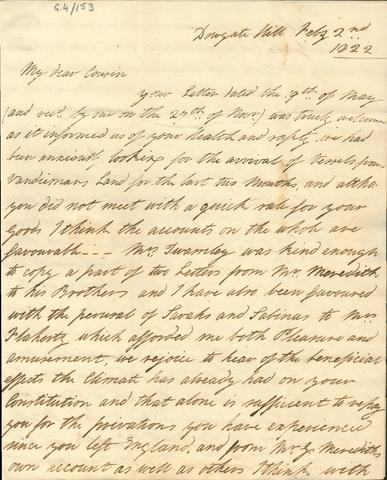 G.4/153
Dowgate Hill Feby 2nd
1822
My dear Cousin
your Letter dated the 9th of May
(and recd by me on the 27th of Novr) was truly welcome
as it informed us of your Health and safety, we had
been anxiously looking for the arrival of Vessels from
Vandiemans Land for the last two Months, and altho
you did not meet with a quick sale for your
goods I think the accounts on the whole are
favourable — Mrs Twamley was kind enough
to copy a part of two Letters from Mr. Meredith
to his Brothers and I have also been favoured
with the perusal of Sarahs and Sabinas to Mrs
Flaherty which afforded me both Pleasure and
amusement, we rejoice to hear of the beneficial
effects the Climate has already had on your
Constitution and that alone is sufficient to repay
you for the privations you have experienced
since you left England, and from Mr G. Merediths
own account as well as others I think with